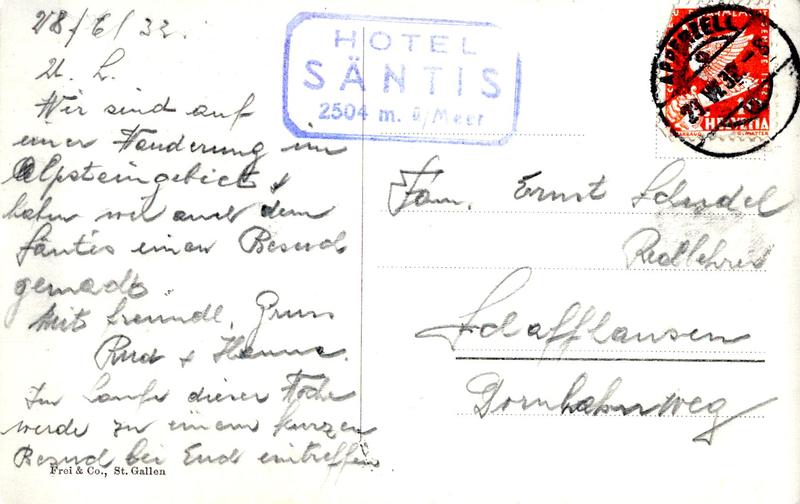 28/6/32.
U. L.
Wir sind auf
einer Wanderung im
Alpsteingebiet &
haben wir auch dem
Säntis einen Besuch
gemacht.
Mit freundl. Gruss
Rud & Hanna.
Im Laufe dieser Woche
werde zu einem kurzen
Besuch bei Euch eintreffen
Frei & Co., St. Gallen
HOTEL
SÄNTIS
2504 m. ü/Meer
APPENZELL
HELVETIA
Fam. Ernst
Reallehrer
Schaffhausen
Dornhahnweg